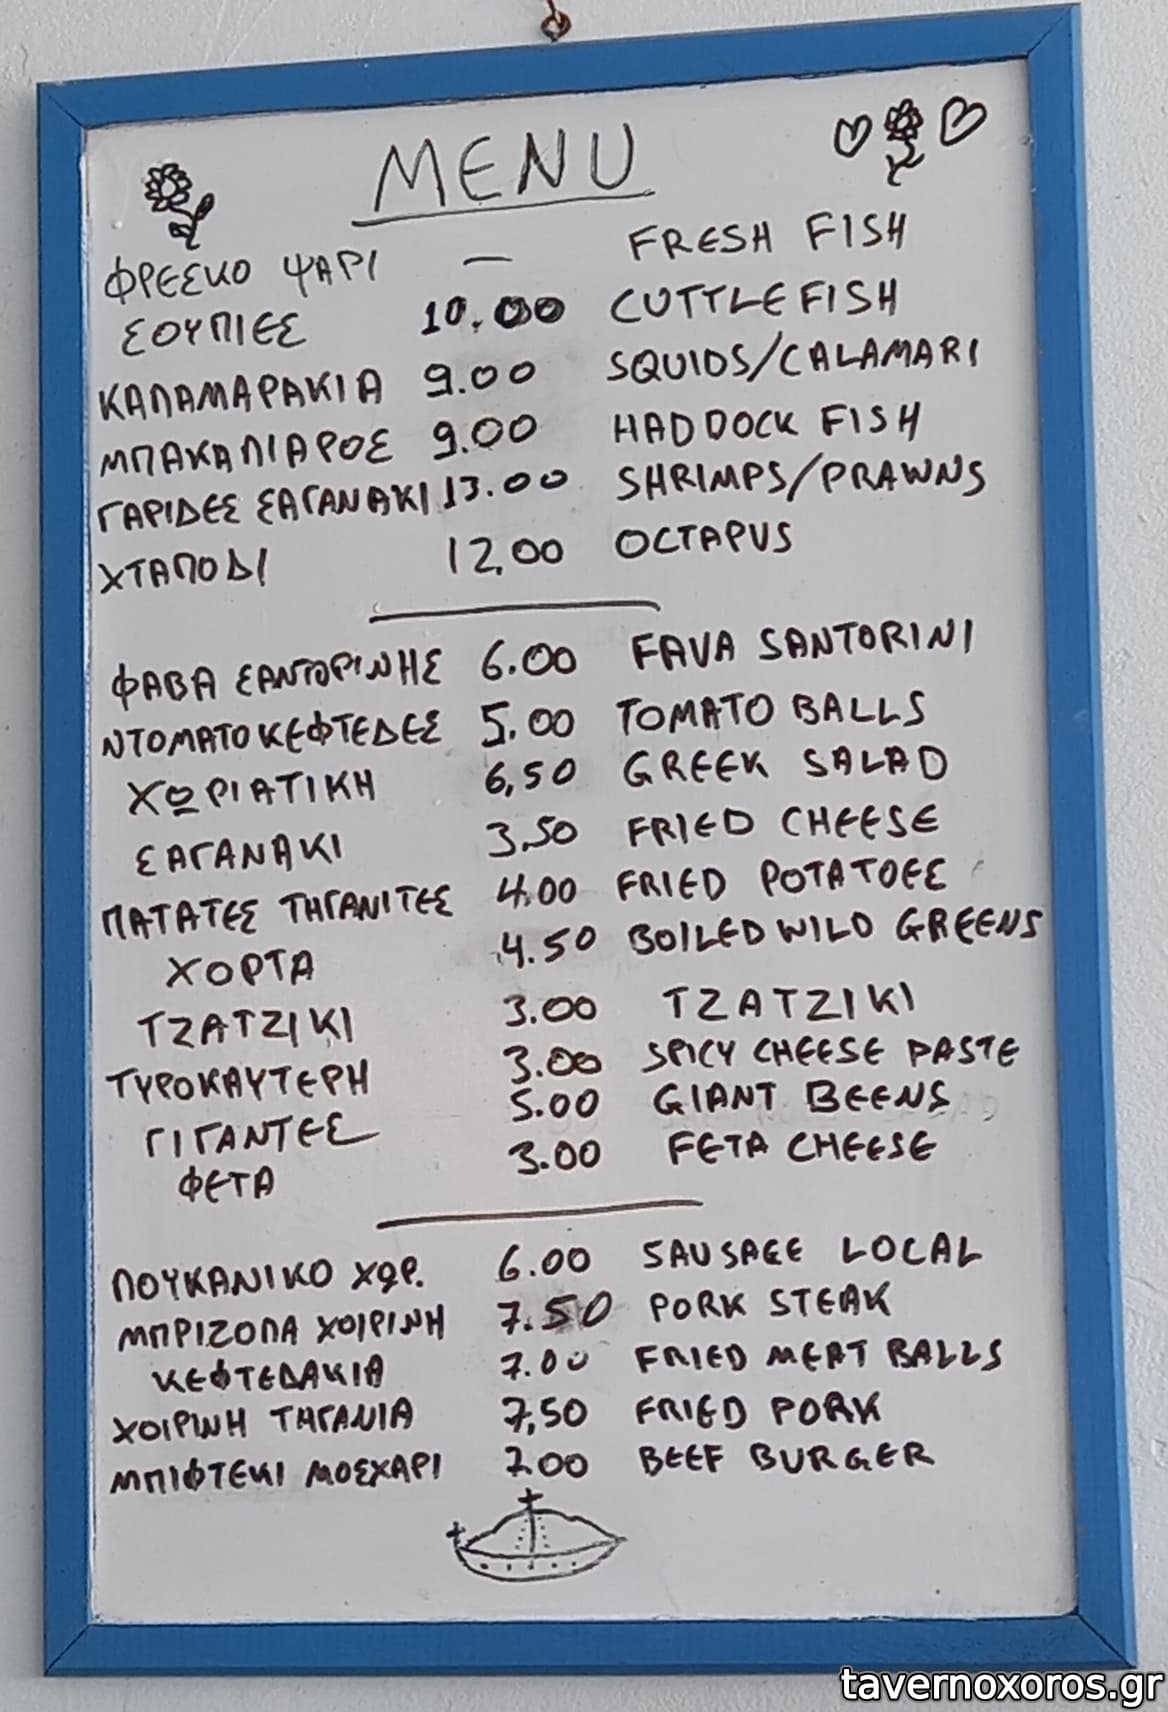 MENU
ΦΡΕΣΚΟ ΨΑΡΙ — FRESH FISH
ΣΟΥΠΙΕΣ 10.00 CUTTLEFISH
ΚΑΛΑΜΑΡΑΚΙΑ 9.00 SQUIDS/CALAMARI
ΜΠΑΚΑΛΙΑΡΟΣ 9.00 HADDOCK FISH
ΓΑΡΙΔΕΣ ΣΑΓΑΝΑΚΙ 13.00 SHRIMPS/PRAWNS
ΧΤΑΠΟΔΙ 12,00 OCTAPUS
ΦΑΒΑ ΣΑΝΤΟΡΙΝΗΣ 6.00 FAVA SANTORINI
ΝΤΟΜΑΤΟΚΕΦΤΕΔΕΣ 5.00 TOMATO BALLS
ΧΩΡΙΑΤΙΚΗ 6,50 GREEK SALAD
ΣΑΓΑΝΑΚΙ 3.50 FRIED CHEESE
ΠΑΤΑΤΕΣ ΤΗΓΑΝΙΤΕΣ 4.00 FRIED POTATOEE
ΧΟΡΤΑ 4.50 BOILED WILD GREENS
ΤΖΑΤΖΙΚΙ 3.00 TZATZIKI
ΤΥΡΟΚΑΥΤΕΡΗ 3.00 SPICY CHEESE PASTE
ΓΙΓΑΝΤΕΣ 5.00 GIANT BEENS
ΦΕΤΑ 3.00 FETA CHEESE
ΛΟΥΚΑΝΙΚΟ ΧΩΡ. 6.00 SAUSAGE LOCAL
ΜΠΡΙΖΟΛΑ ΧΟΙΡΙΝΗ 7.50 PORK STEAK
ΚΕΦΤΕΔΑΚΙΑ 7.00 FRIED MEAT BALLS
ΧΟΙΡΙΝΗ ΤΗΓΑΝΙΑ 7,50 FRIED PORK
ΜΠΙΦΤΕΚΙ ΜΟΣΧΑΡΙ 7.00 BEEF BURGER
tavernoxoros.gr